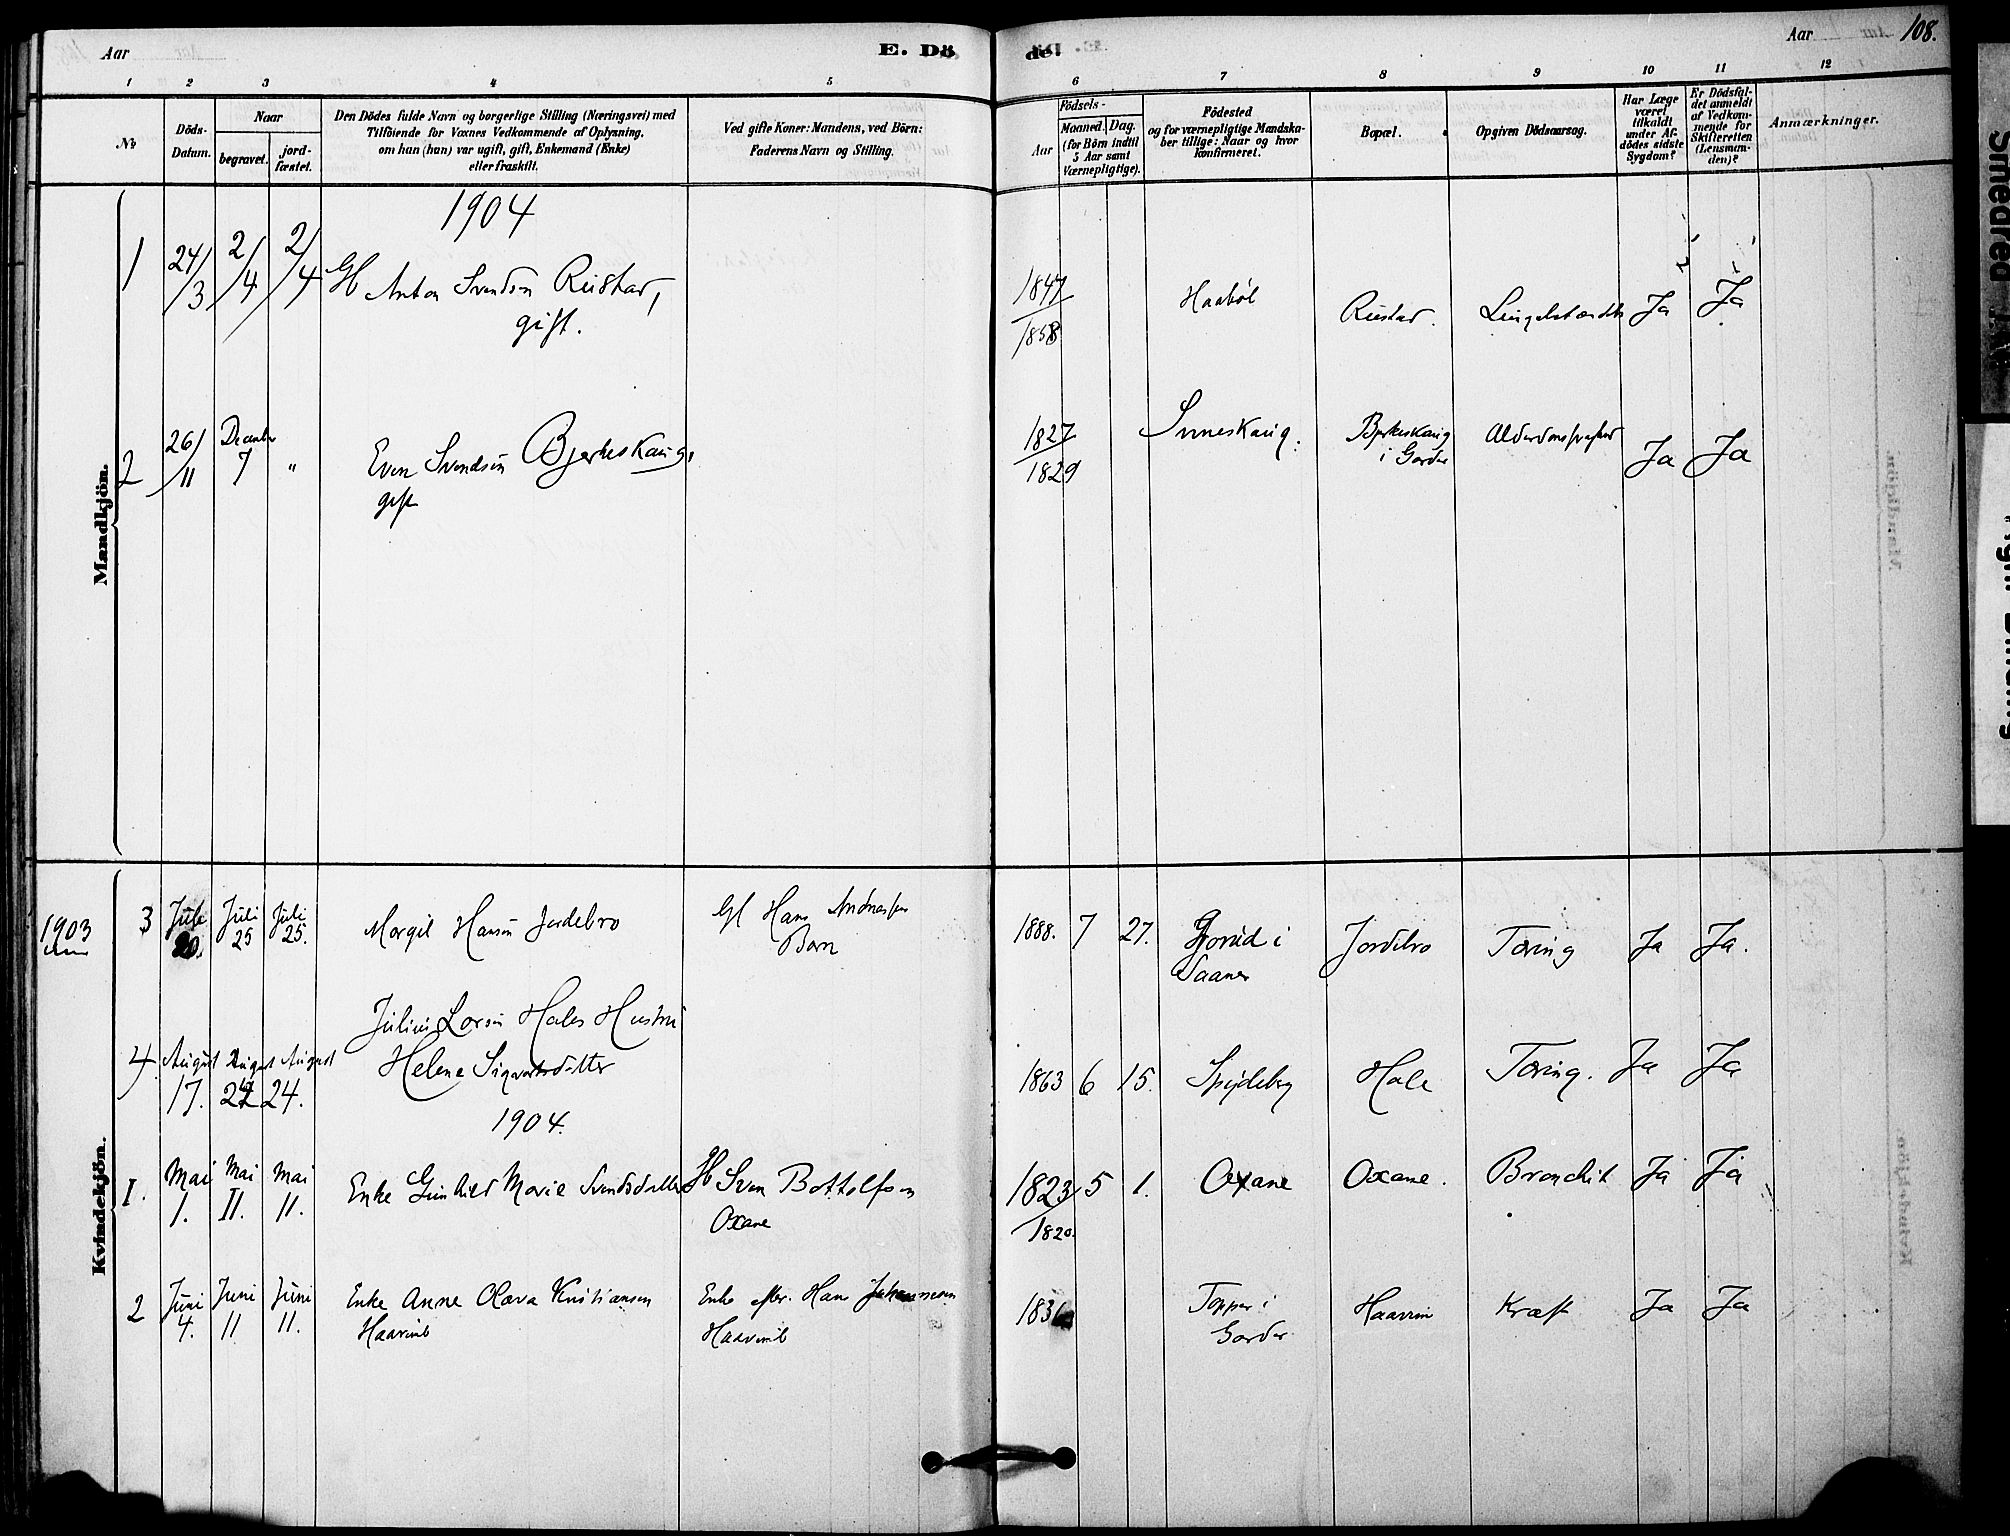 Aar
E. Dö
de.
Aar
108.
1 2 3 4 5 6 7 8 9 10 11 12
No
Döds-
Datum.
Naar
begravet.
jord-
fæstet.
Den Dödes fulde Navn og borgerlige Stilling (Næringsvei) med
Tilföiende for Voxnes Vedkommende af Oplysning,
om han (hun) var ugift, gift, Enkemand (Enke)
eller fraskilt.
Ved gifte Koner: Mandens, ved Börn:
Faderens Navn og Stilling.
Födsels-
Aar
Maaned. Dag.
(for Börn indtil
5 Aar samt
Værnepligtige).
Födested
og for værnepligtige Mandska-
ber tillige: Naar og hvor
konfirmeret.
Bopæl.
Opgiven Dödsaarsag.
Har Læge
været
tilkaldt
under Af-
dödes sidste
Sygdom?
Er Dödsfal-
det anmeldt
af Vedkom-
mende for
Skifteretten
(Lensman-
den)?
Anmærkninger.
Mandkjön.
1904
1 24/3 2/4 2/4 Anton Svendsen Rustad, 1847 Haabøl Rustad. Ja Ja
gift. 1858
2 26/11 December 7 " Even Svendsen Bjerkeskaug, 1827 Bjerkeskaug Ja Ja
gift 1829 i Garder
Kvindekjön.
1903
3 Juli 20. Juli 25 Juli 25. Margit Hansen Jordebro Gl Hans Andreasen 1888. 7 27. i Jordebro Tæring Ja Ja.
Barn Saaner
Julius Larsen Hales Hustru
4 August 17. August 24 August 24. Helene Sigvartsdatter 1863 6 15. Spydeberg Hale Tæring. Ja Ja
1904.
1. Mai 1. Mai 11. Mai 11. Enke Gunhild Marie Svendsdatter Sven Bottolfsen 1823 5 1. Oxane Oxane. Bronchit Ja Ja
Oxane 1820.
2 Juni 4. Juni 11 Juni 11. Enke Anne Olava Kristiansen Enke efter Hans Johannesen 1836 Topper i Kræft Ja Ja
Garder